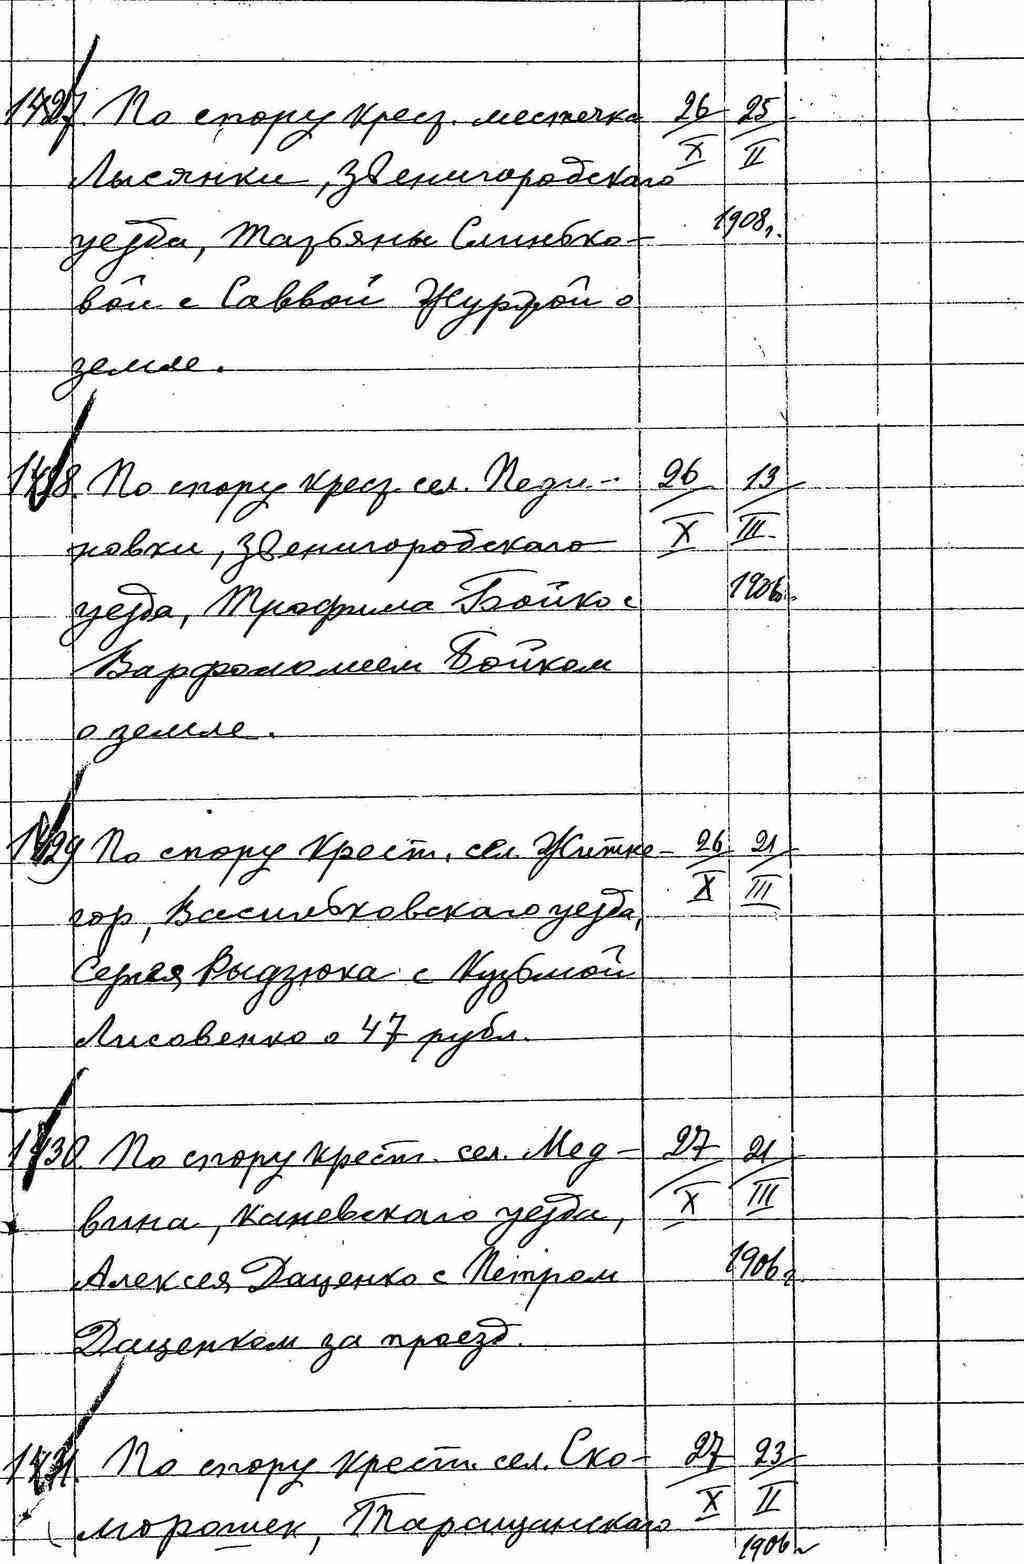 1427. По спору крест. местечка 26/X 25/II
Лысянки, Звенигородскаго
уезда, Татьяны Слинько- 1908 г.
вой с Саввой Журбой о
земле.
1428. По спору крест. сел. Педи- 26/X 13/III
новки, Звенигородскаго
уезда, Трофима Бойко с 1906 г.
Варфоломеем Бойком
о земле.
1429 По спору крест. сел. Житне- 26/X 21/III
гор, Васильковскаго уезда,
Сергея Рыдзюка с Кузьмой
Лисовенко о 47 рубл.
1430. По спору крест. сел. Мед- 27/X 21/III
вина, Каневскаго уезда,
Алексея Даценко с Петром 1906 г.
Даценком за проезд.
1431. По спору крест. сел. Ско- 27/X 23/II
морошек, Таращанскаго
1906 г